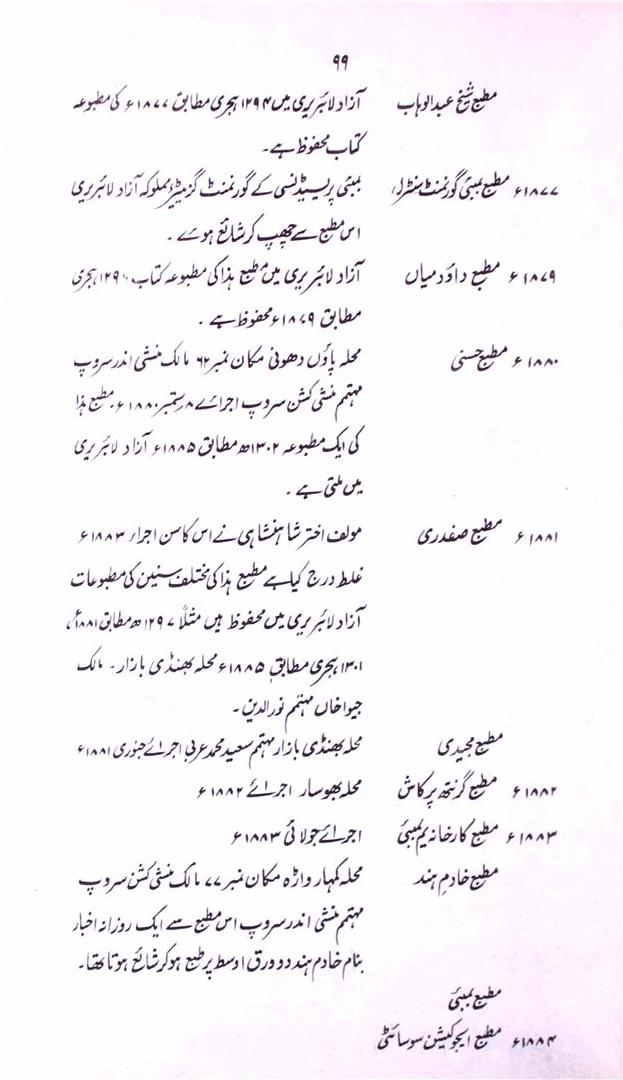 ۹۹
مطبع شیخ عبدالوہاب آزاد لائبریری میں ۱۲۹۴ ہجری مطابق ۱۸۷۷ء کی مطبوعہ
کتاب محفوظ ہے۔
۱۸۷۷ء مطبع بمبئی گورنمنٹ سنٹرل بمبئی پریسیڈنسی کے گورنمنٹ گزیٹیر مملوکہ آزاد لائبریری
اس مطبع سے چھپ کر شائع ہوئے۔
۱۸۷۹ء مطبع داؤد میاں آزاد لائبریری میں مطبع ہذا کی مطبوعہ کتاب ہجری
مطابق ۱۸۷۹ء محفوظ ہے۔
۱۸۸۰ء مطبع حسنی محلہ پاؤں دھونی مکان نمبر ۶۲ مالک منشی اندر سروپ
مہتمم منشی کشن سروپ اجرائے ۸ ستمبر ۱۸۸۰ء۔ مطبع ہذا
کی ایک مطبوعہ ۱۳۰۲ھ مطابق ۱۸۸۵ء آزاد لائبریری
میں ملتی ہے۔
۱۸۸۱ء مطبع صفدری مولف اختر شاہنشاہی نے اس کا سن اجراء ۱۸۸۳ء
غلط درج کیا ہے مطبع ہذا کی مختلف سنین کی مطبوعات
آزاد لائبریری میں محفوظ ہیں مثلاً ۱۲۹۷ھ مطابق ۱۸۸۱ء،
۱۳۰۱ ہجری مطابق ۱۸۸۵ء محلہ بھنڈی بازار۔ مالک
جیوا خاں مہتمم نورالدین۔
مطبع مجیدی محلہ بھنڈی بازار مہتمم سعید محمد عربی اجرائے جنوری ۱۸۸۱ء
۱۸۸۲ء مطبع گرنتھ پرکاش محلہ بھوسار اجرائے ۱۸۸۲ء
۱۸۸۳ء مطبع کارخانہ یم بمبئی اجرائے جولائی ۱۸۸۳ء
مطبع خادم ہند محلہ کمہار واڑہ مکان نمبر ۷۷ مالک منشی کشن سروپ
مہتمم منشی اندر سروپ اس مطبع سے ایک روزانہ اخبار
بنام خادم ہند دو ورق اوسط پر طبع ہوکر شائع ہوتا تھا۔
مطبع بمبئی
۱۸۸۴ء مطبع ایجوکیشن سوسائٹی